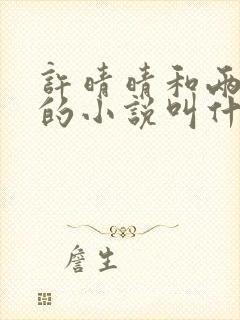 許晴晴和兩
的小說叫什
詹生